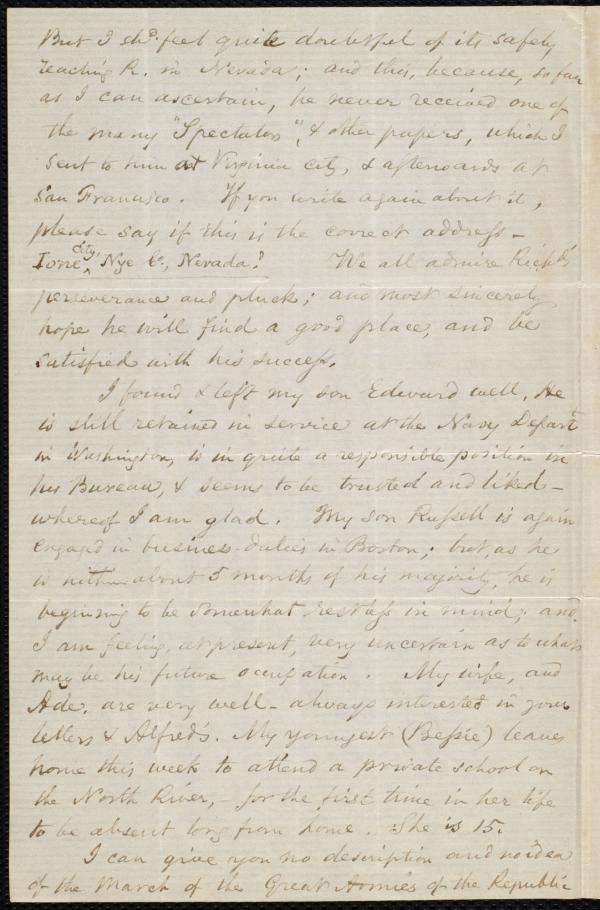 But I shd. feel quite doubtful of its safely
reaching R. in Nevada; and this, because, so far
as I can ascertain, he never received one of
the many "Spectators", & other papers, which I
sent to him at Virginia city, & afterwards at
San Francisco. If you write again about it,
please say if this is the correct address -
Ione City, Nye Co., Nevada? We all admire Richd's
perseverance and pluck; and most sincerely
hope he will find a good place, and be
satisfied with his success.
I found & left my son Edward well. He
is still retained in service at the Navy Depart
in Washington, is in quite a responsible position in
his Bureau, & seems to be trusted and liked -
whereof I am glad. My son Russell is again
engaged in business-duties in Boston; but as he
is within about 5 months of his majority, he is
beginning to be somewhat restless in mind; and
I am feeling, at present, very uncertain as to what
may be his future occupation. My wife, and
Ade. are very well - always interested in your
letters & Alfred's. My youngest (Bessie) leaves
home this week to attend a private school on
the North River, - for the first time in her life
to be absent long from home. She is 15.
I can give you no description and no idea
of the March of the Great Armies of the Republic